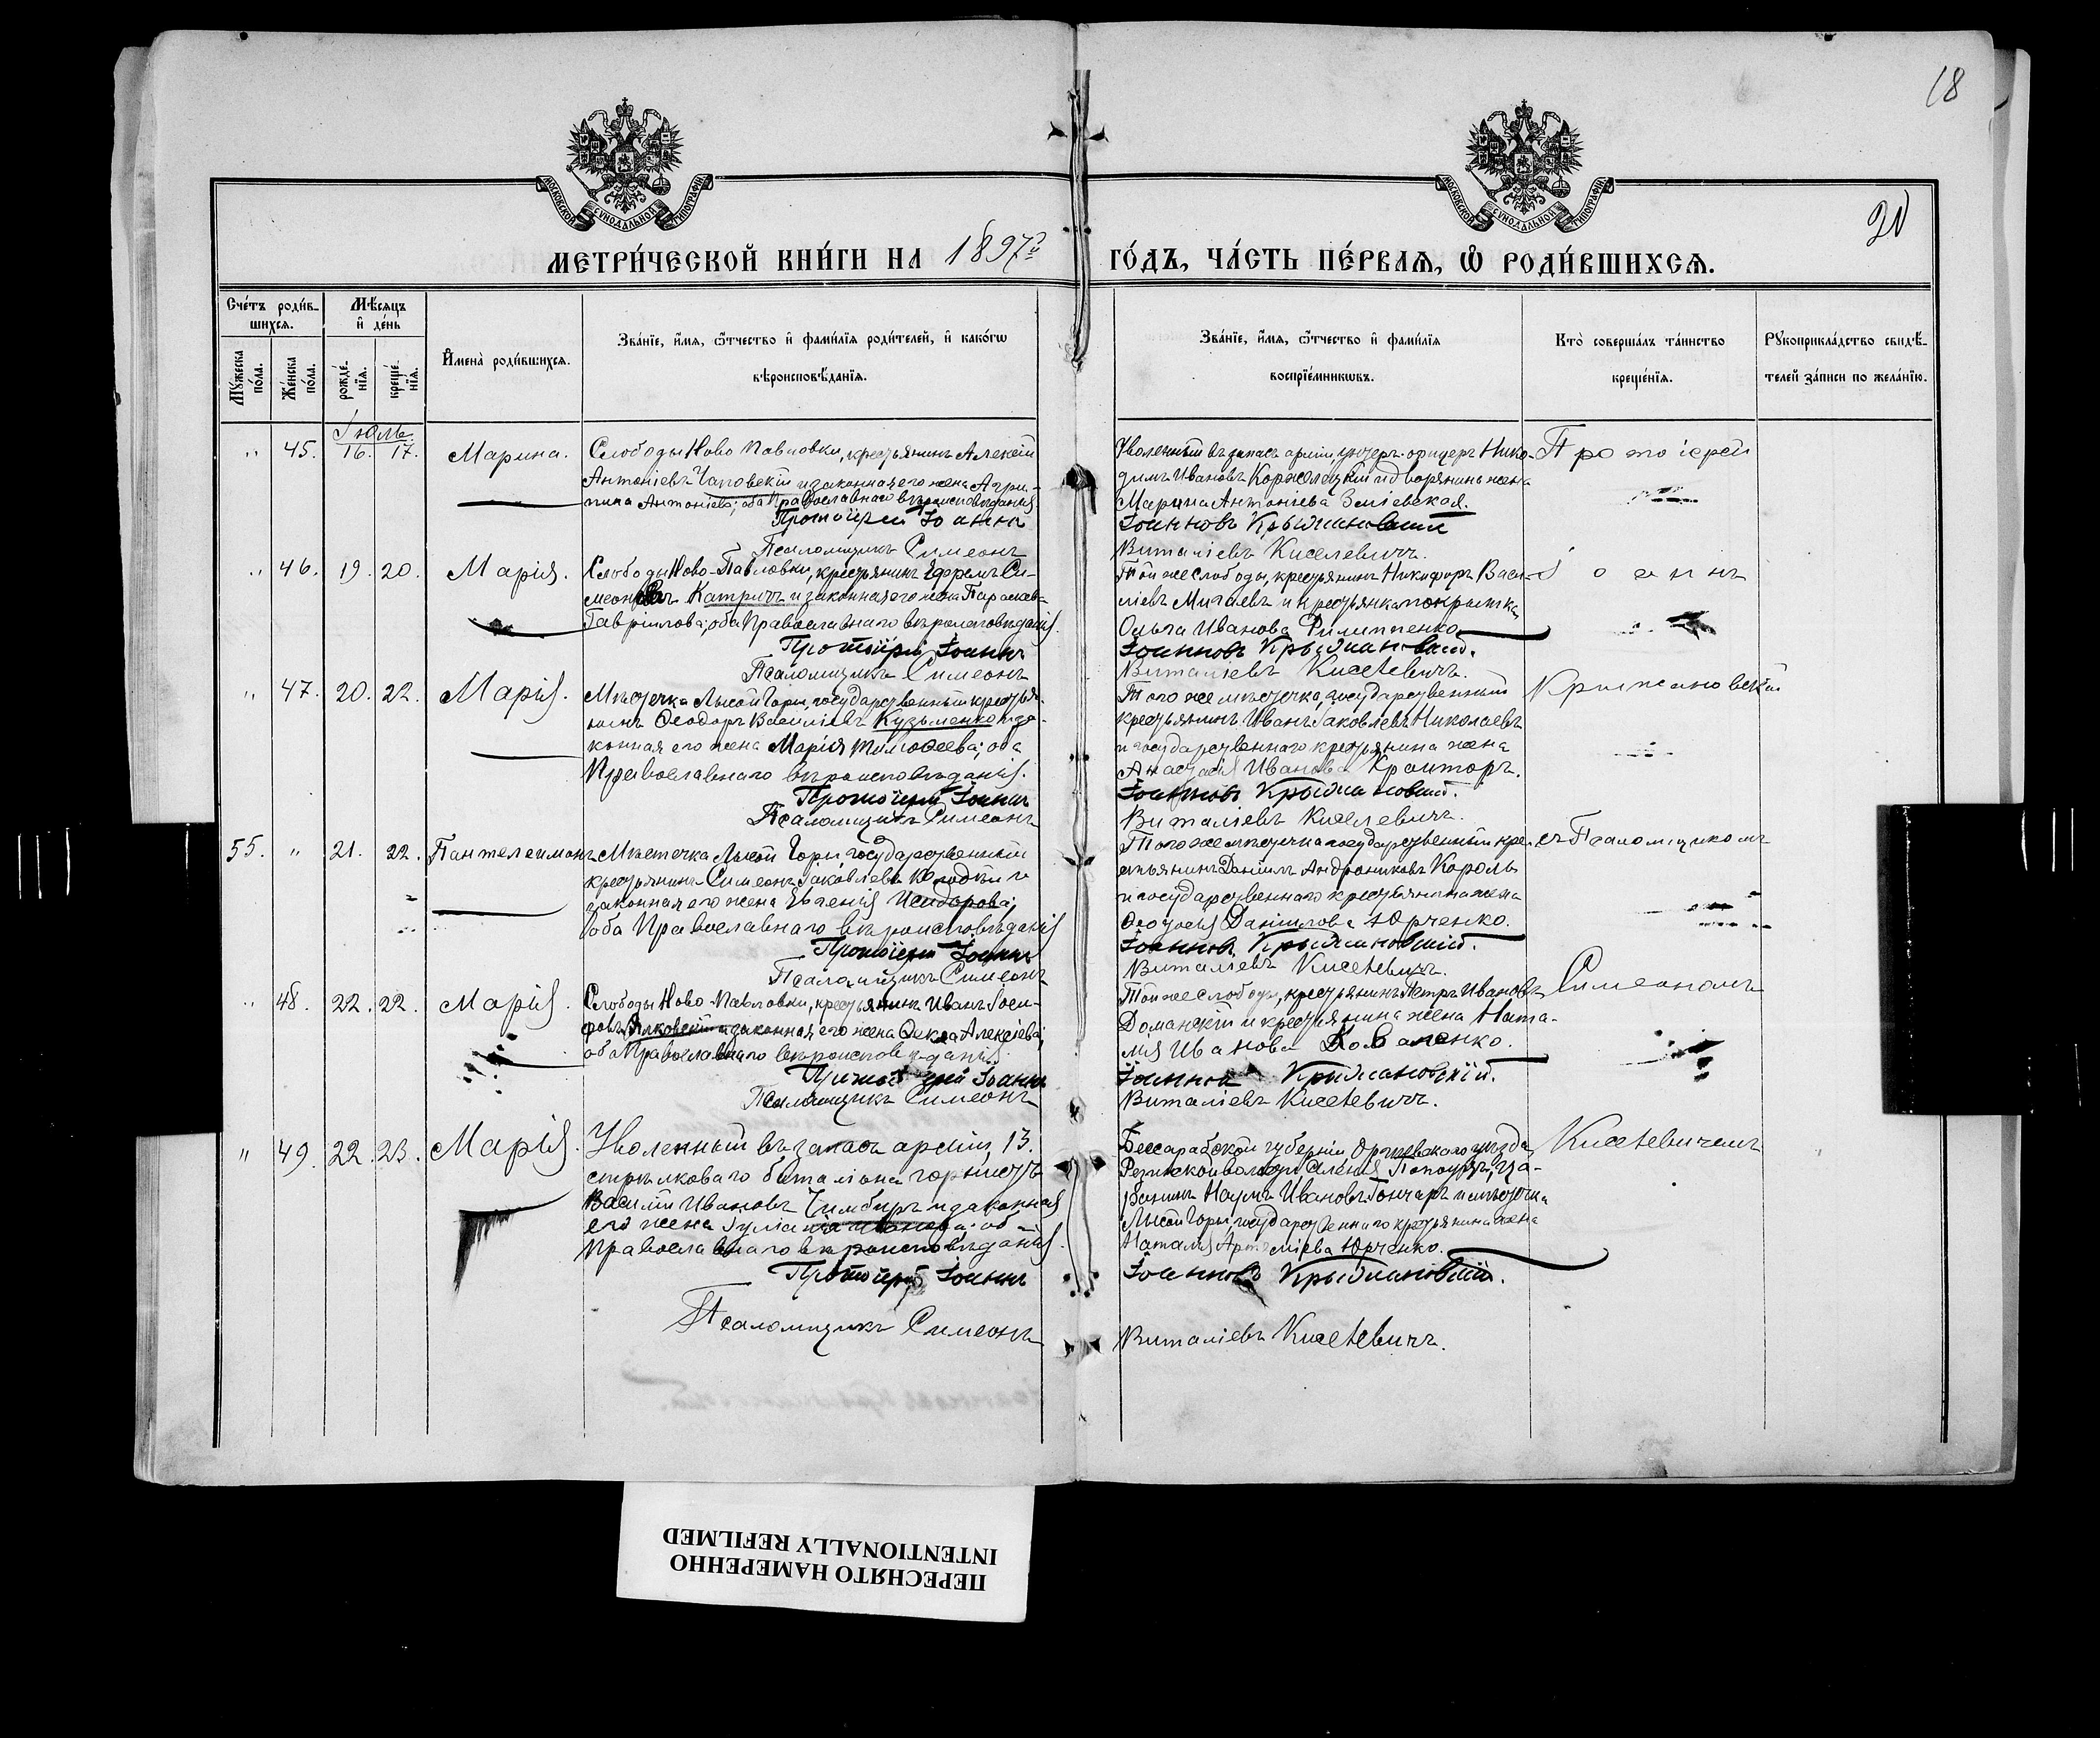 18
МОСКОВСКОЙ СѴНОДАЛЬНОЙ ТИПОГРАФІИ
МОСКОВСКОЙ СѴНОДАЛЬНОЙ ТИПОГРАФІИ
20
МЕТРИ́ЧЕСКОЙ КНИ́ГИ НА 1897й ГО́ДЪ, ЧА́СТЬ ПЕ́РВАЯ, Ѡ҆ РОДИ́ВШИХСЯ.
Сче́тъ роди́вшихся.
Мꙋ́жеска по́ла.
Же́нска по́ла.
Мѣ́сяцъ и҆ де́нь
рожде́нїя.
креще́нїя.
И҆мена̀ роди́вшихся.
Зва́нїе, и҆́мя, ѻ҆́тчество и҆ фами́лїя роди́телей, и҆ како́гѡ вѣроисповѣ́данїя.
Зва́нїе, и҆́мя, ѻ҆́тчество и҆ фами́лїя воспрїе́мникѡвъ.
Кто̀ соверша́лъ та́инство креще́нїя.
Рꙋкоприкла́дство свидѣ́телей за́писи по жела́нїю.
Іюль
" 45. 16. 17. Марина.
Слободы Ново Павловки, крестьянинъ Алексій
Антоніевъ Чаповскій и законная его жена Агри-
пина Антоніева; оба Православнаго вѣроисповѣданія
Протоіерей Іоаннъ
Псаломщикъ Симеонъ
Уволенный въ запасъ арміи, унтеръ-офицеръ Нико-
димъ Ивановъ и дворянина жена
Марина Антоніева
Іоанновъ Крыжановскій
Виталіевъ Киселевичъ.
Протоіерей
" 46. 19. 20. Марія.
Слободы Ново-Павловки, крестьянинъ Ефремъ Си-
меоновъ Катричъ и законная его жена Параскев-
Гавріилова; оба Православнаго вѣроисповѣданія.
Протоіерей Іоаннъ
Псаломщикъ Симеонъ
Той же слободы, крестьянинъ Никифоръ Васи-
ліевъ и крестьянка покрытка
Ольга Иванова Филиппенко
Іоанновъ Крыжановскій.
Виталіевъ Киселевичъ.
Іоаннъ
" 47. 20. 22. Марія.
Мѣстечка Лысой Горы, государственный крестья-
нинъ Ѳеодоръ Василіевъ Кузьменко и за-
конная его жена Марія Тимоѳеева; оба
Православнаго вѣроисповѣданія.
Протоіерей Іоаннъ
Псаломщикъ Симеонъ
Того же мѣстечка, государственный
крестьянинъ Иванъ Іаковлевъ Николаевъ
и государственнаго крестьянина жена
Анастасія Иванова Краиторъ.
Іоанновъ Крыжановскій.
Виталіевъ Киселевичъ.
Крыжановскій
55. " 21. 22. Пантелеимонъ
Мѣстечка Лысой Горы, государственный
крестьянинъ Симеонъ Іаковлевъ и
законная его жена Евгенія Исидорова;
оба Православнаго вѣроисповѣданія
Протоіерей Іоаннъ
Псаломщикъ Симеонъ
Того же мѣстечка государственный кре-
стьянинъ Даніилъ Андрониковъ Король
и государственнаго крестьянина жена
Ѳеодосія Даніилова Юрченко.
Іоанновъ Крыжановскій.
Виталіевъ Киселевичъ.
съ Псаломщикомъ
" 48. 22. 22. Марія.
Слободы Ново-Павловки, крестьянинъ Иванъ Іоси-
фовъ и законная его жена Ѳекла Алексіева;
оба Православнаго вѣроисповѣданія.
Протоіерей Іоаннъ
Псаломщикъ Симеонъ
Той же слободы, крестьянинъ Петръ Ивановъ
Доманскій и крестьянина жена Ната-
лія Иванова Коваленко.
Іоанновъ Крыжановскій.
Виталіевъ Киселевичъ.
Симеономъ
" 49. 22. 23. Марія.
Уволенный въ запасъ арміи, 13.
стрѣлковаго баталіона горнистъ
Василій Ивановъ Чимбиръ и законная
его жена Іуліанія Иванова; оба
Православнаго вѣроисповѣданія.
Протоіерей Іоаннъ
Псаломщикъ Симеонъ
Бессарабской губерніи Оргѣевскаго уѣзда,
волости селенія ца-
ранинъ Наумъ Ивановъ Гончаръ и мѣстечка
Лысой Горы, государственнаго крестьянина жена
Наталія Артеміева Юрченко.
Іоанновъ Крыжановскій.
Виталіевъ Киселевичъ.
Киселевичемъ
ПЕРЕСНЯТО НАМЕРЕННО
INTENTIONALLY REFILMED